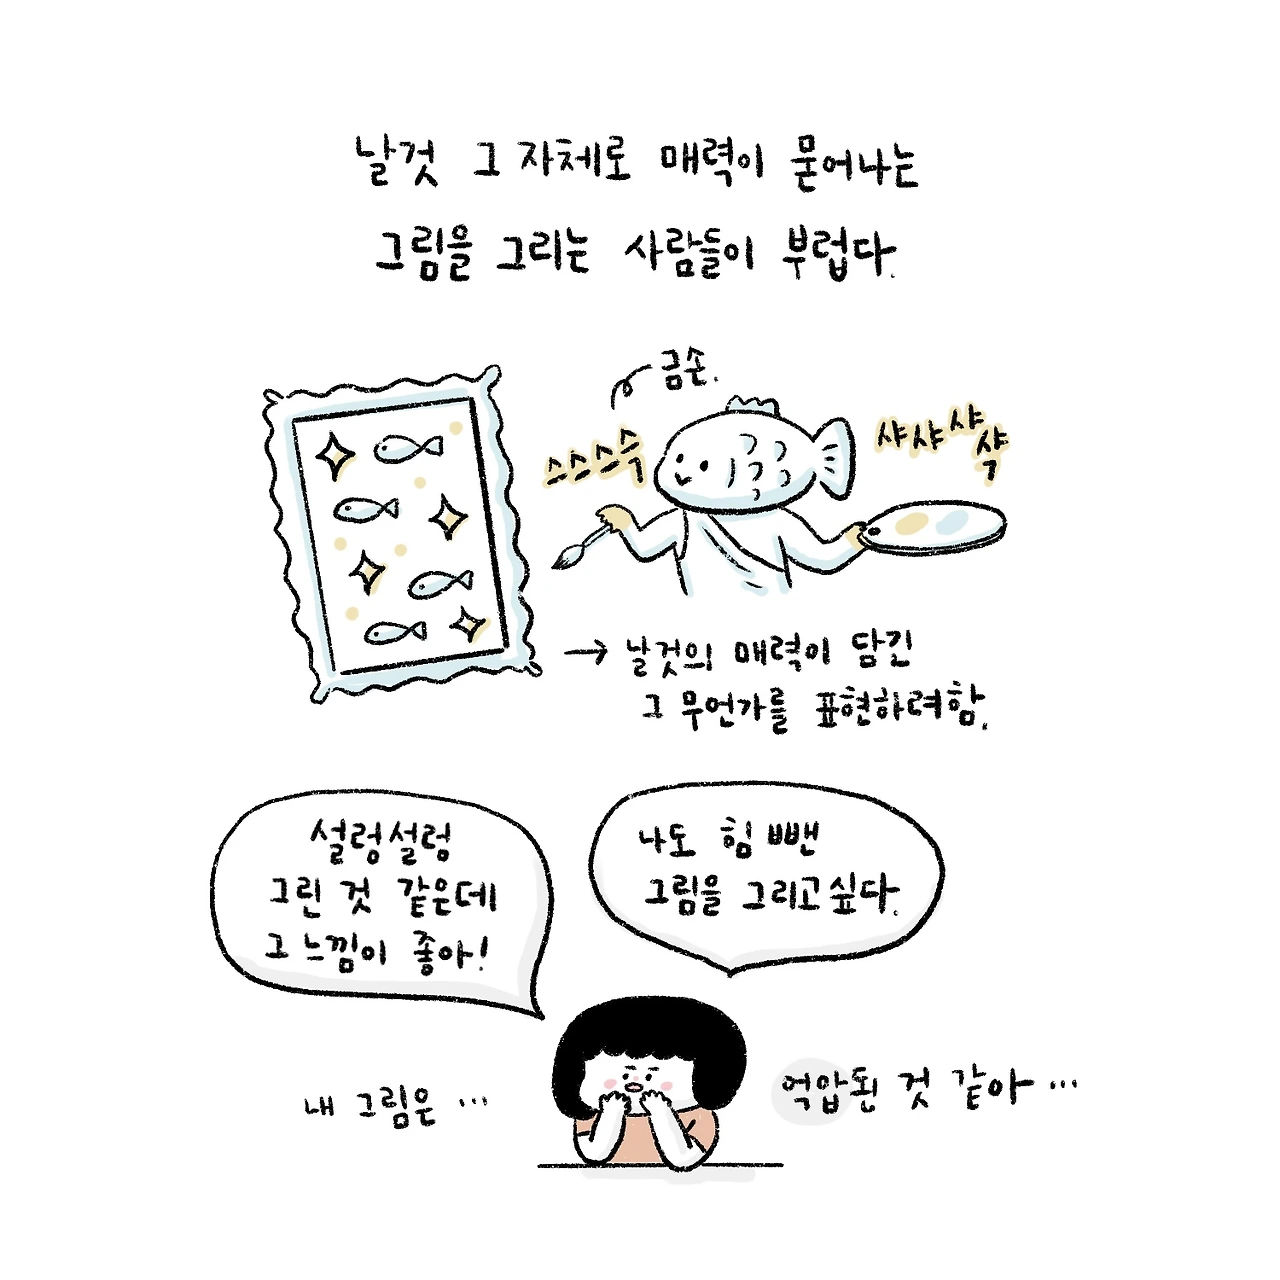 날것 그 자체로 매력이 묻어나는
그림을 그리는 사람들이 부럽다.
금손.
스스스슥
샤샤샤샥
→ 날것의 매력이 담긴
그 무언가를 표현하려함.
설렁설렁
그린 것 같은데
그 느낌이 좋아!
나도 힘 뺀
그림을 그리고싶다.
내 그림은 …
억압된 것 같아 …